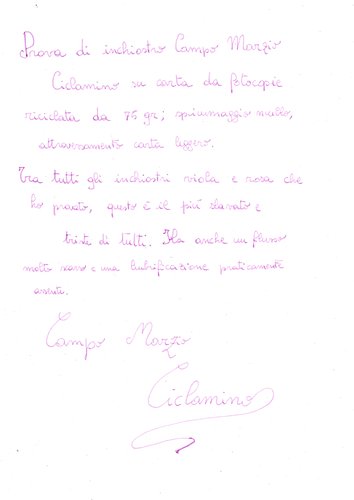 Prova di inchiostro Campo Marzio
Ciclamino su carta da fotocopie
riciclata da 75 gr; spiumaggio nullo,
attraversamento carta leggero.
Tra tutti gli inchiostri viola e rosa che
ho provato, questo è il più slavato e
triste di tutti. Ha anche un flusso
molto scarso e una lubrificazione praticamente
assente.
Campo Marzio
Ciclamino